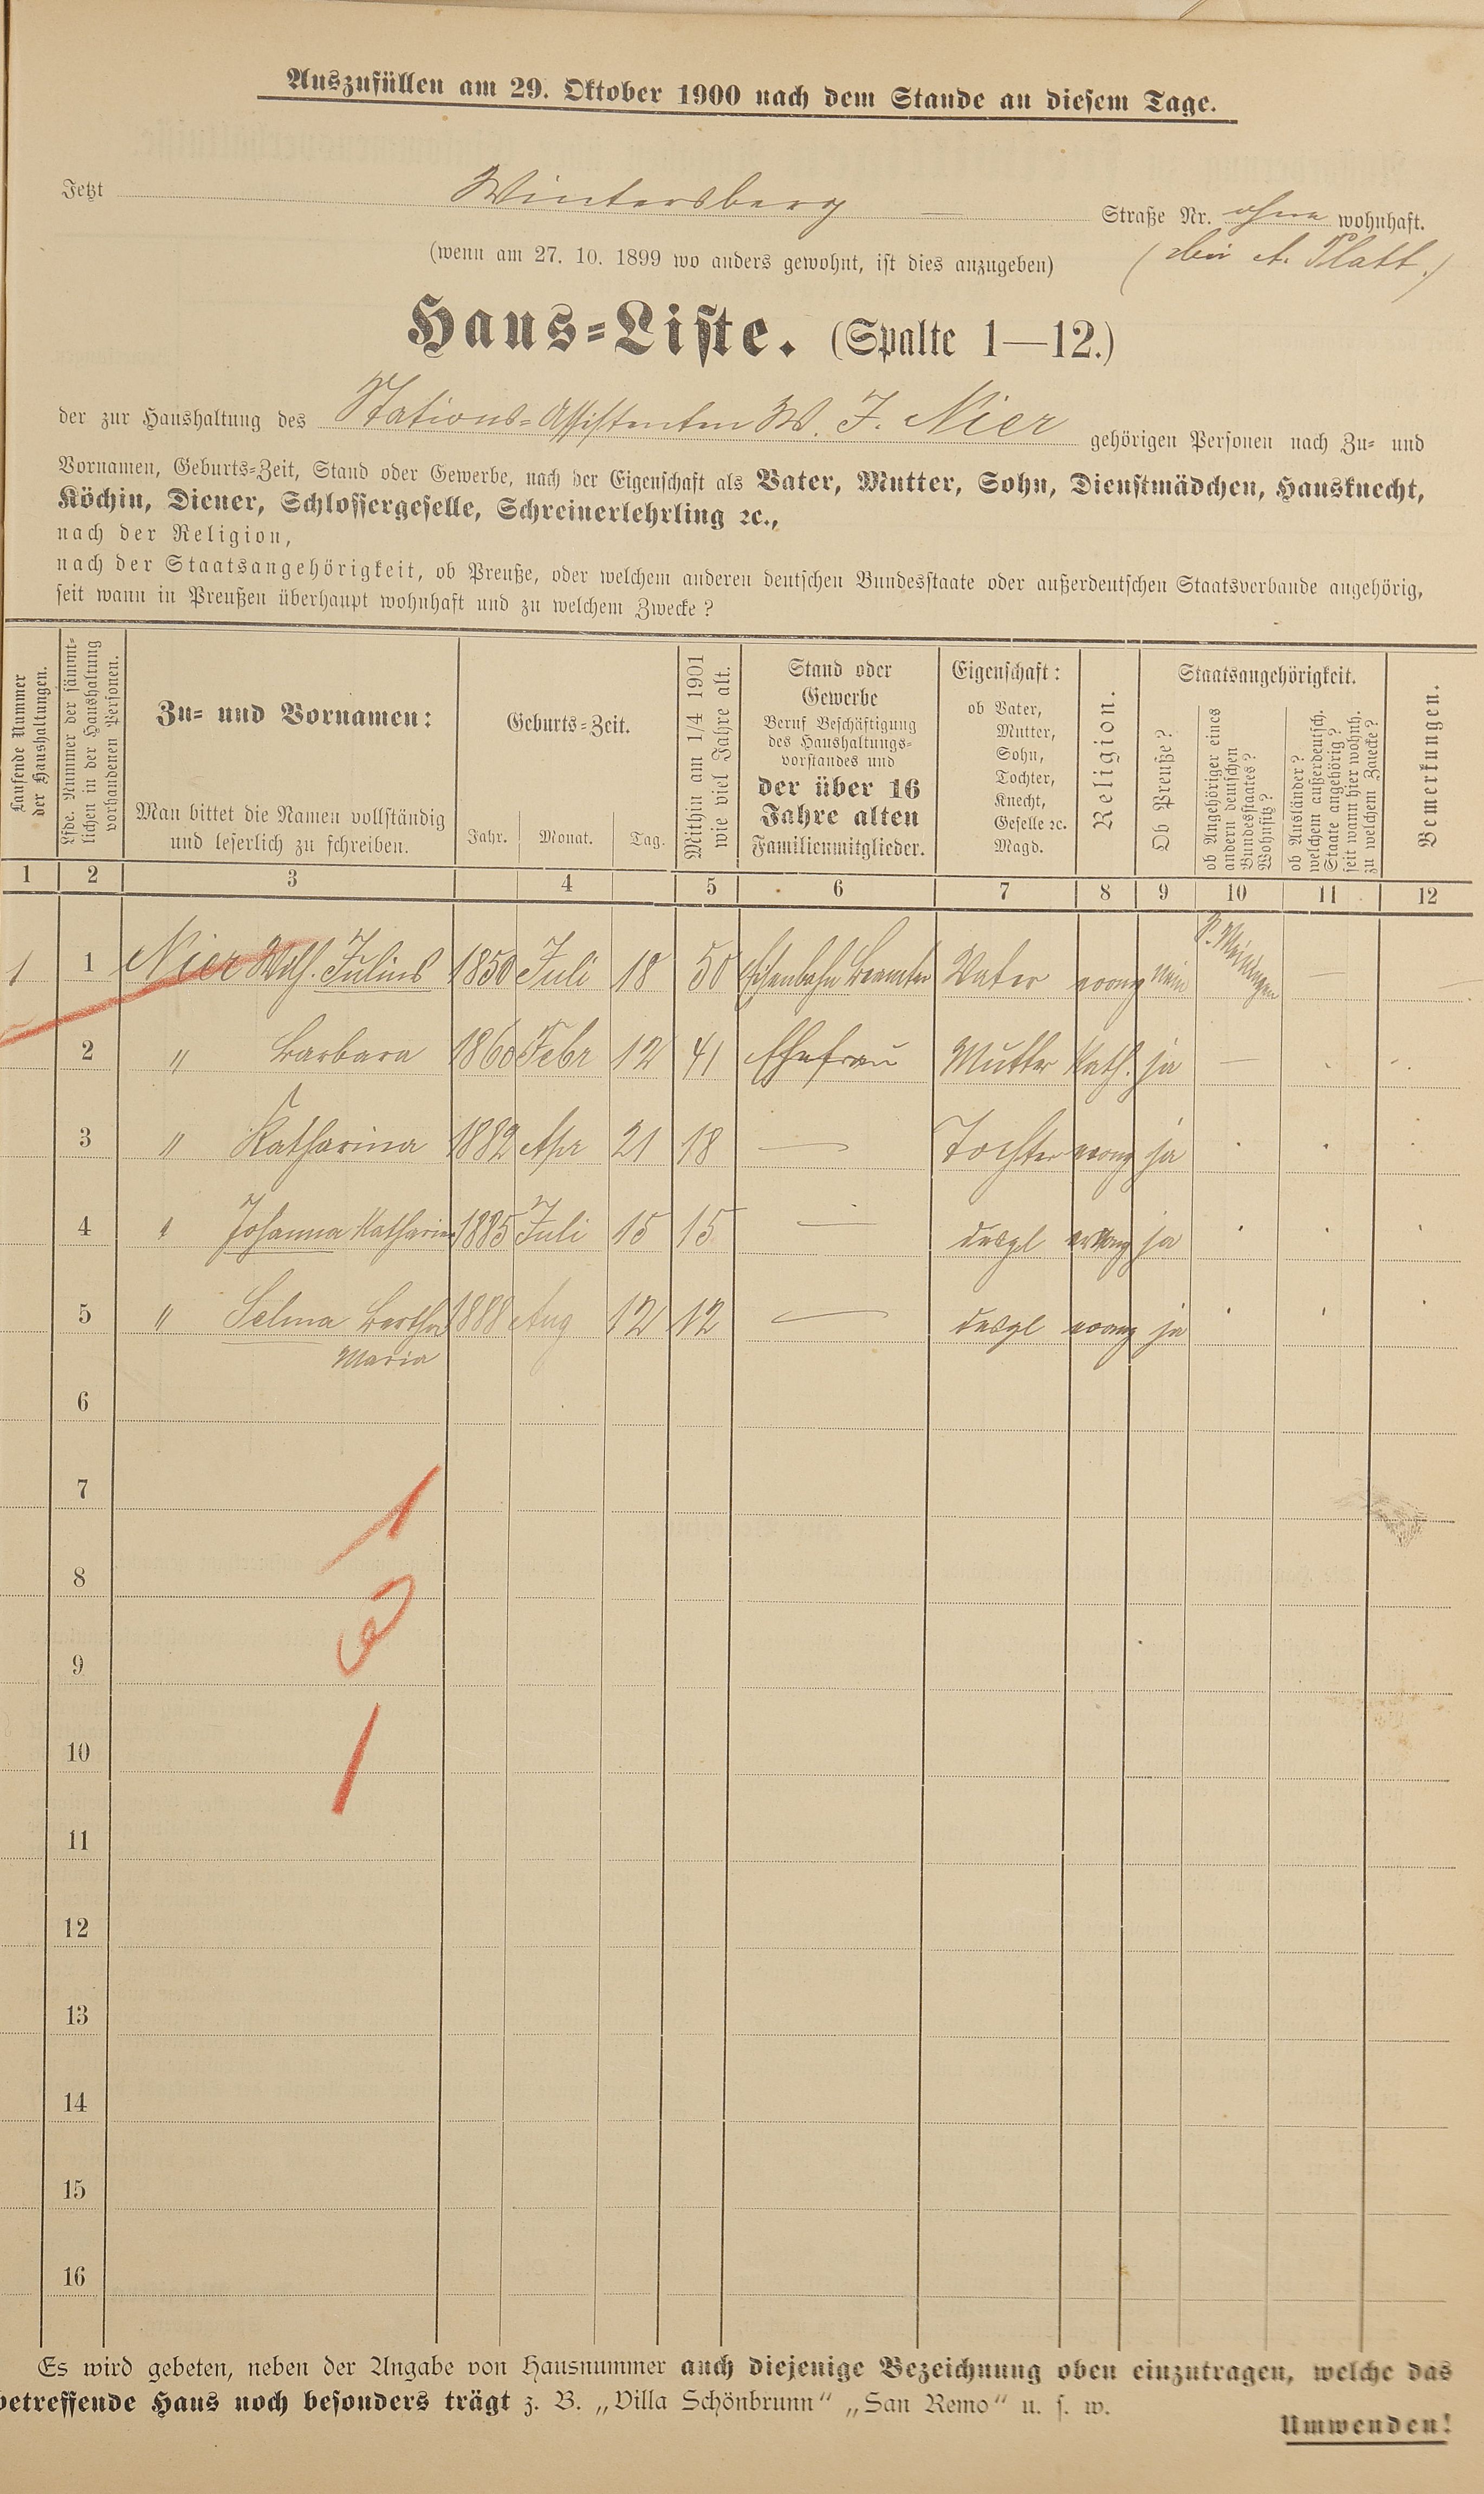 Auszufüllen am 29. Oktober 1900 nach dem Stande an diesem Tage.
Jetzt Wintersberg — Straße Nr. ohne wohnhaft.
(wenn am 27. 10. 1899 wo anders gewohnt, ist dies anzugeben) (bei A. Platt.)
Haus-Liste. (Spalte 1—12.)
der zur Haushaltung des Stations-Assistenten W. J. Nier gehörigen Personen nach Zu- und
Vornamen, Geburts-Zeit, Stand oder Gewerbe, nach der Eigenschaft als Vater, Mutter, Sohn, Dienstmädchen, Hausknecht,
Köchin, Diener, Schlossergeselle, Schreinerlehrling ꝛc.,
nach der Religion,
nach der Staatsangehörigkeit, ob Preuße, oder welchem anderen deutschen Bundesstaate oder außerdeutschen Staatsverbande angehörig,
seit wann in Preußen überhaupt wohnhaft und zu welchem Zwecke?
Laufende Nummer der Haushaltungen.
Lfde. Nummer der sämmtlichen in der Haushaltung vorhandenen Personen.
Zu- und Vornamen:
Man bittet die Namen vollständig
und leserlich zu schreiben.
Geburts-Zeit.
Jahr. Monat. Tag.
Mithin am 1/4 1901 wie viel Jahre alt.
Stand oder
Gewerbe
Beruf Beschäftigung
des Haushaltungs-
vorstandes und
der über 16
Jahre alten
Familienmitglieder.
Eigenschaft:
ob Vater,
Mutter,
Sohn,
Tochter,
Knecht,
Geselle ꝛc.
Magd.
Religion.
Staatsangehörigkeit.
Ob Preuße?
ob Angehöriger eines andern deutschen Bundesstaates? Wohnsitz?
ob Ausländer? welchem außerdeutsch. Staate angehörig? seit wann hier wohnh. zu welchem Zwecke?
Bemerkungen.
1 2 3 4 5 6 7 8 9 10 11 12
1 1 Nier Wilh. Julius 1850 Juli 18 50 Eisenbahn Beamter Vater evang nein S. Meiningen —
2 " Barbara 1860 Febr 12 41 Ehefrau Mutter Kath. ja —
3 " Katharina 1882 Apr 21 18 — Tochter evang ja
4 " Johanna Katharina 1885 Juli 15 15 — desgl evang ja
5 " Selma Bertha 1888 Aug 12 12 — desgl evang ja
Maria
6
7
1
8
9
10
1
11
12
13
14
15
16
Es wird gebeten, neben der Angabe von Hausnummer auch diejenige Bezeichnung oben einzutragen, welche das
betreffende Haus noch besonders trägt z. B. „Villa Schönbrunn“ „San Remo“ u. s. w.
Umwenden!